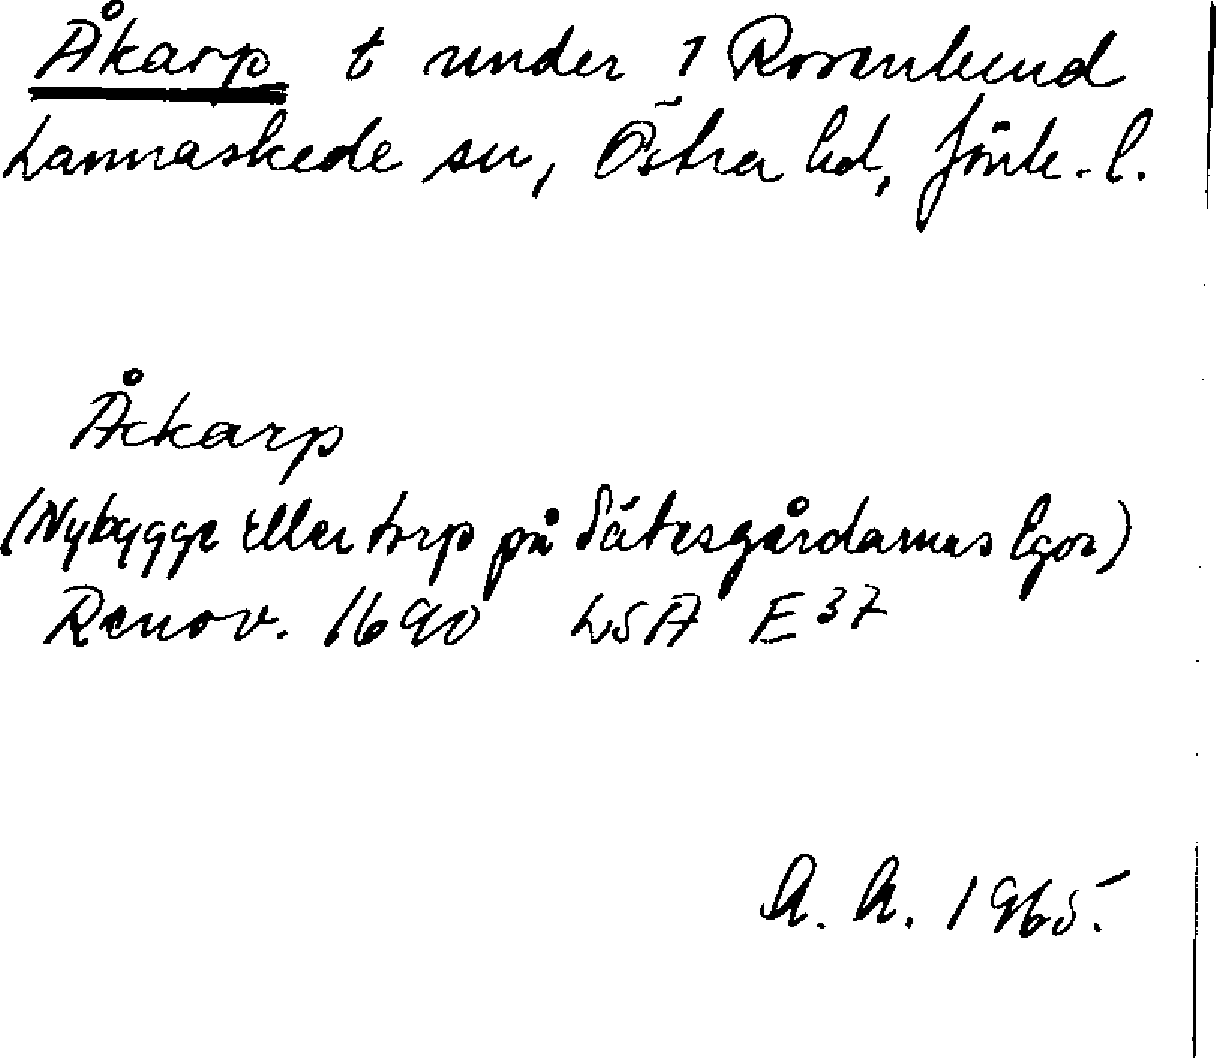 Åkarp t under 1 Rosenlund
Lannaskede sn, Östra hd, Jönk. l.
Åckarp
(Nybygge eller torp på Sätesgårdarnas Egor)
Renov. 1690 LSA E37
A. A. 1965.